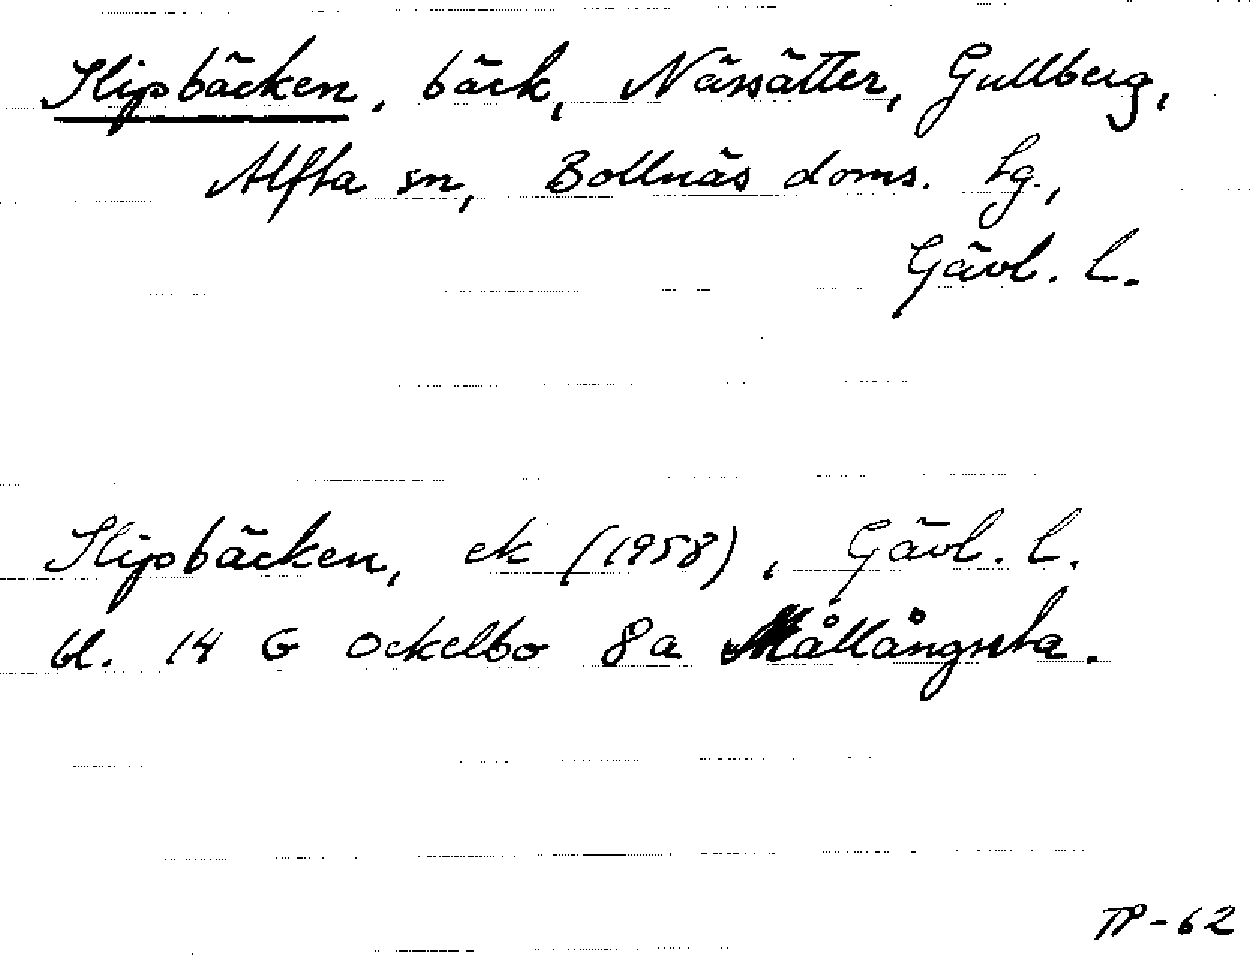 Slipbäcken, bäck, Nässätter, Gullberg,
Alfta sn, Bollnäs doms. lg.,
Gävl. l.
Slipbäcken, ek (1958), Gävl. l.
bl. 14 G Ockelbo 8a Mållångsta.
TP-62